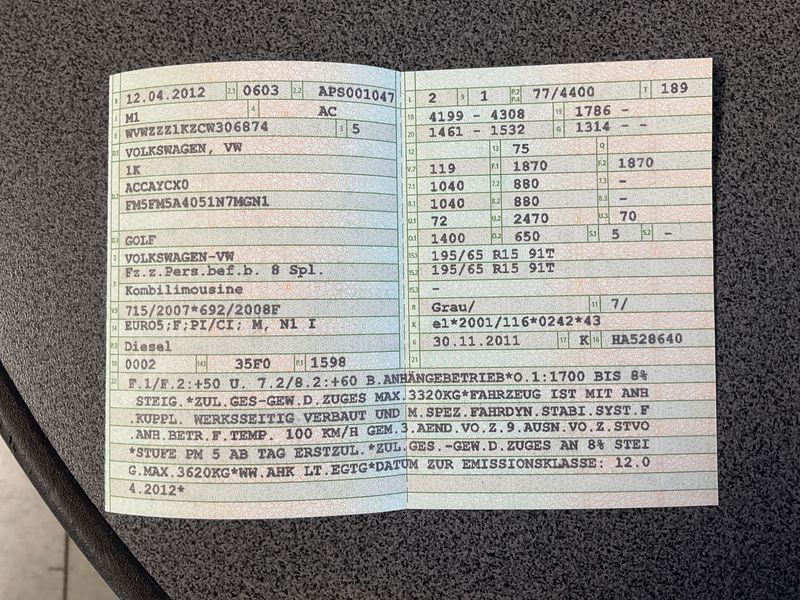 B 12.04.2012 2.1 0603 2.2 APS001047
J M1 4 AC
E WVWZZZ1KZCW306874 3 5
D.1 VOLKSWAGEN, VW
1K
D.2 ACCAYCX0
FM5FM5A4051N7MGN1
D.3 GOLF
2 VOLKSWAGEN-VW
5 Fz.z.Pers.bef.b. 8 Spl.
Kombilimousine
V.9 715/2007*692/2008F
14 EURO5;F;PI/CI; M, N1 I
P.3 Diesel
10 0002 14.1 35F0 P.1 1598
L 2 9 1 P.2 P.4 77/4400 T 189
18 4199 - 4308 19 1786 -
20 1461 - 1532 G 1314 - -
12 13 75 Q
V.7 119 F.1 1870 F.2 1870
7.1 1040 7.2 880 7.3 -
8.1 1040 8.2 880 8.3 -
U.1 72 U.2 2470 U.3 70
O.1 1400 O.2 650 S.1 5 S.2 -
15.1 195/65 R15 91T
15.2 195/65 R15 91T
15.3 -
R Grau/ 11 7/
K e1*2001/116*0242*43
6 30.11.2011 17 K 16 HA528640
21
22 F.1/F.2:+50 U. 7.2/8.2:+60 B.ANHÄNGEBETRIEB*O.1:1700 BIS 8%
STEIG.*ZUL.GES-GEW.D.ZUGES MAX.3320KG*FAHRZEUG IST MIT ANH
.KUPPL. WERKSSEITIG VERBAUT UND M.SPEZ.FAHRDYN.STABI.SYST.F
.ANH.BETR.F.TEMP. 100 KM/H GEM.3.AEND.VO.Z.9.AUSN.VO.Z.STVO
*STUFE PM 5 AB TAG ERSTZUL.*ZUL.GES.-GEW.D.ZUGES AN 8% STEI
G.MAX.3620KG*WW.AHK LT.EGTG*DATUM ZUR EMISSIONSKLASSE: 12.0
4.2012*